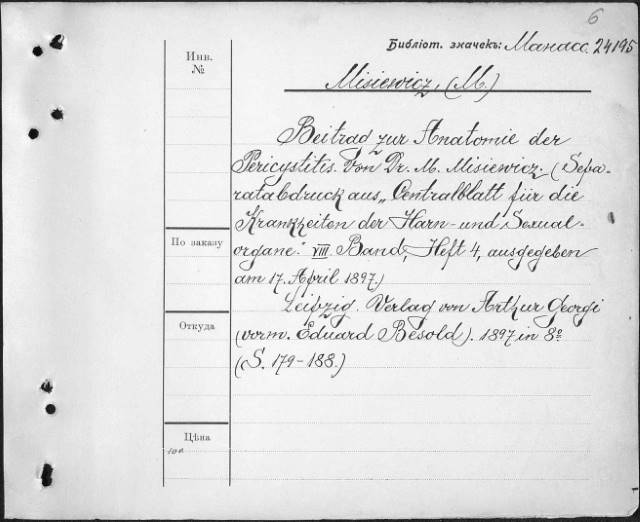 6
Библіот. значекъ: Манасс. 24195
Инв.
№
Misiewicz, (M.)
Beitrag zur Anatomie der
Pericystitis. Von Dr. M. Misiewicz. (Sepa-
ratabdruck aus „Centralblatt für die
Krankheiten der Harn- und Sexual-
organe." VIII Band, Heft 4, ausgegeben
am 17. April 1897.)
Leipzig. Verlag von Arthur Georgi
(vorm. Eduard Besold). 1897 in 8º
(S. 179-188.)
По заказу
Откуда
Цѣна